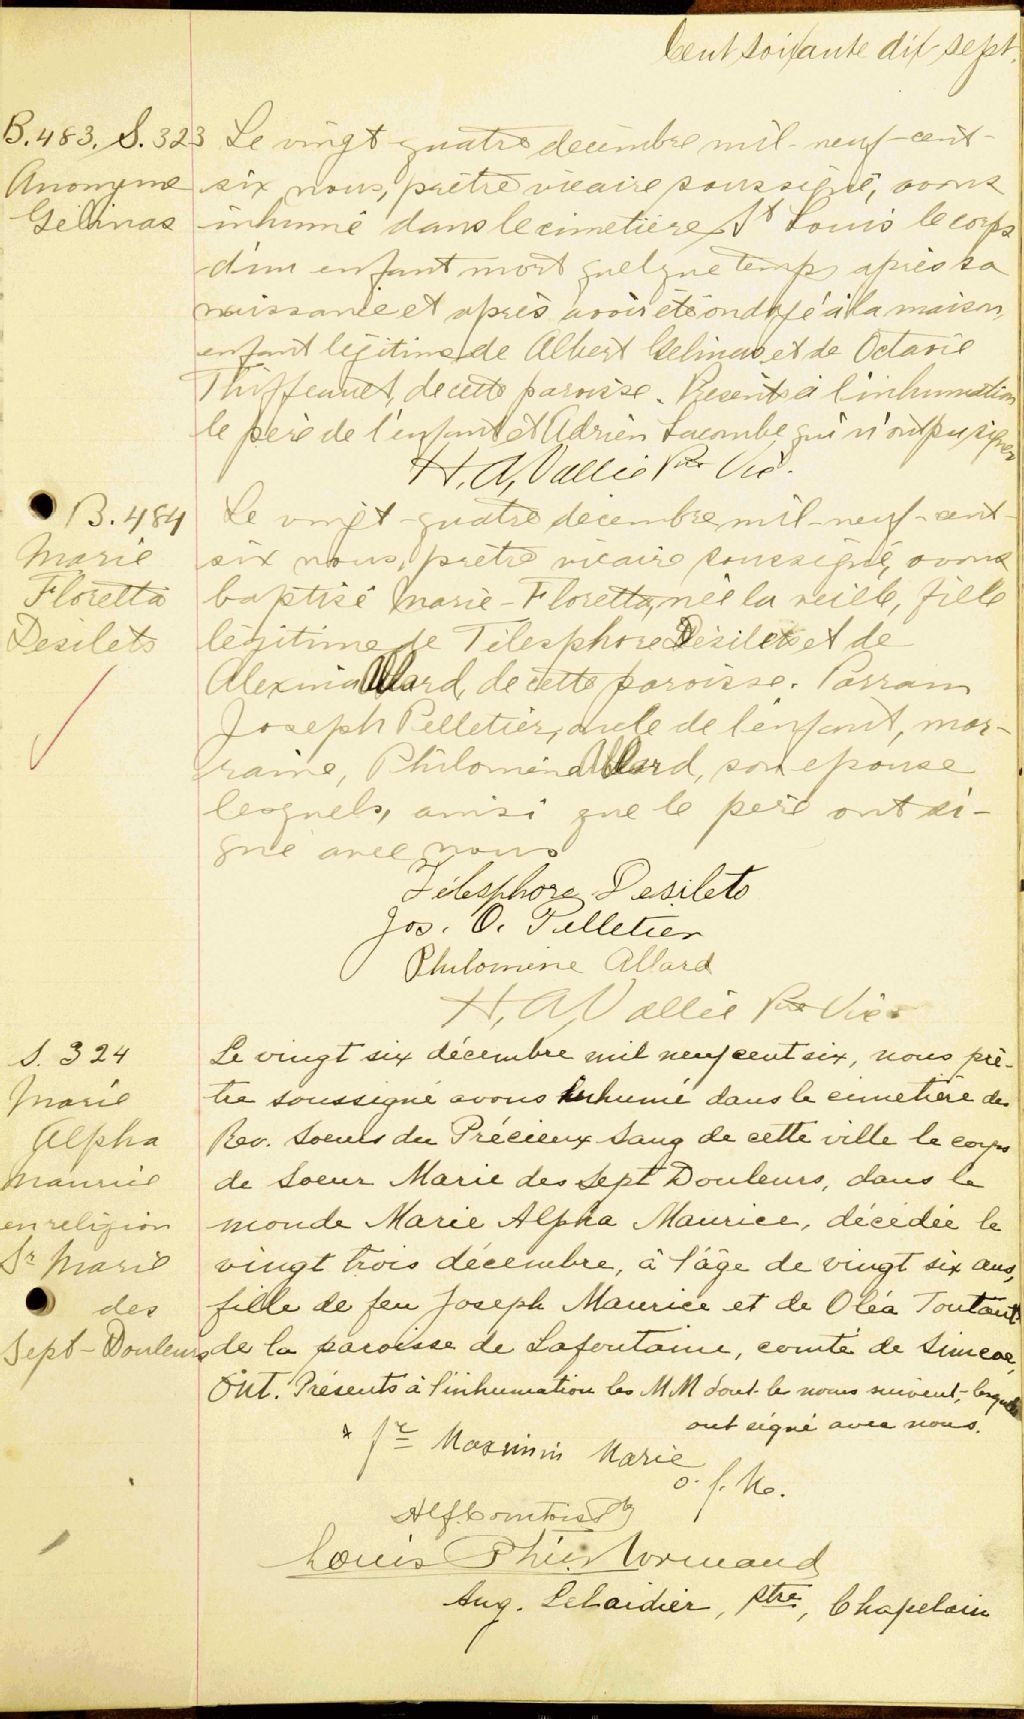 Cent soixante dix sept.
B. 483. S. 323
Anonyme
Gélinas
Le vingt-quatre décembre mil-neuf-cent-
six nous, prêtre vicaire soussigné, avons
inhumé dans le cimetière St Louis le corps
d'un enfant mort quelque temps après sa
naissance et après avoir été ondoyé à la maison,
enfant légitime de Albert Gelinas et de Octavie
Thiffeault, de cette paroisse. Présents à l'inhumation
le père de l'enfant et Adrien Lacombe qui n'ont pu signer
H. A. Vallée Ptre Vic.
B. 484
Marie
Floretta
Desilets
Le vingt-quatre décembre mil-neuf-cent-
six nous, prêtre vicaire soussigné, avons
baptisé Marie-Floretta, née la veille, fille
légitime de Télesphore Désilets et de
Alexina Allard, de cette paroisse. Parrain
Joseph Pelletier, oncle de l'enfant, mar-
raine, Philomène Allard, son epouse
lesquels, ainsi que le père ont si-
gné avec nous
Télesphore Desilets
Jos. O. Pelletier
Philomène Allard
H. A. Vallée Ptre Vic.
S. 324
Marie
Alpha
Maurice
en religion
Sr Marie
des
Sept-Douleurs
Le vingt six décembre mil neuf cent six, nous prê-
tre soussigné avons inhumé dans le cimetière des
Rev. Soeurs du Précieux Sang de cette ville le corps
de Soeur Marie des Sept Douleurs, dans le
monde Marie Alpha Maurice, décédée le
vingt trois décembre, à l'âge de vingt six ans,
fille de feu Joseph Maurice et de Oléa Toutant
de la paroisse de Lafontaine, comté de Simcoe,
Ont. Présents à l'inhumation les MM dont les noms suivent, lesquels
ont signé avec nous.
fr Maximin Marie
o. f. M.
Alf. Comtois Ptre
Louis Phil. Normand
Aug. Lelaidier, ptre, Chapelain